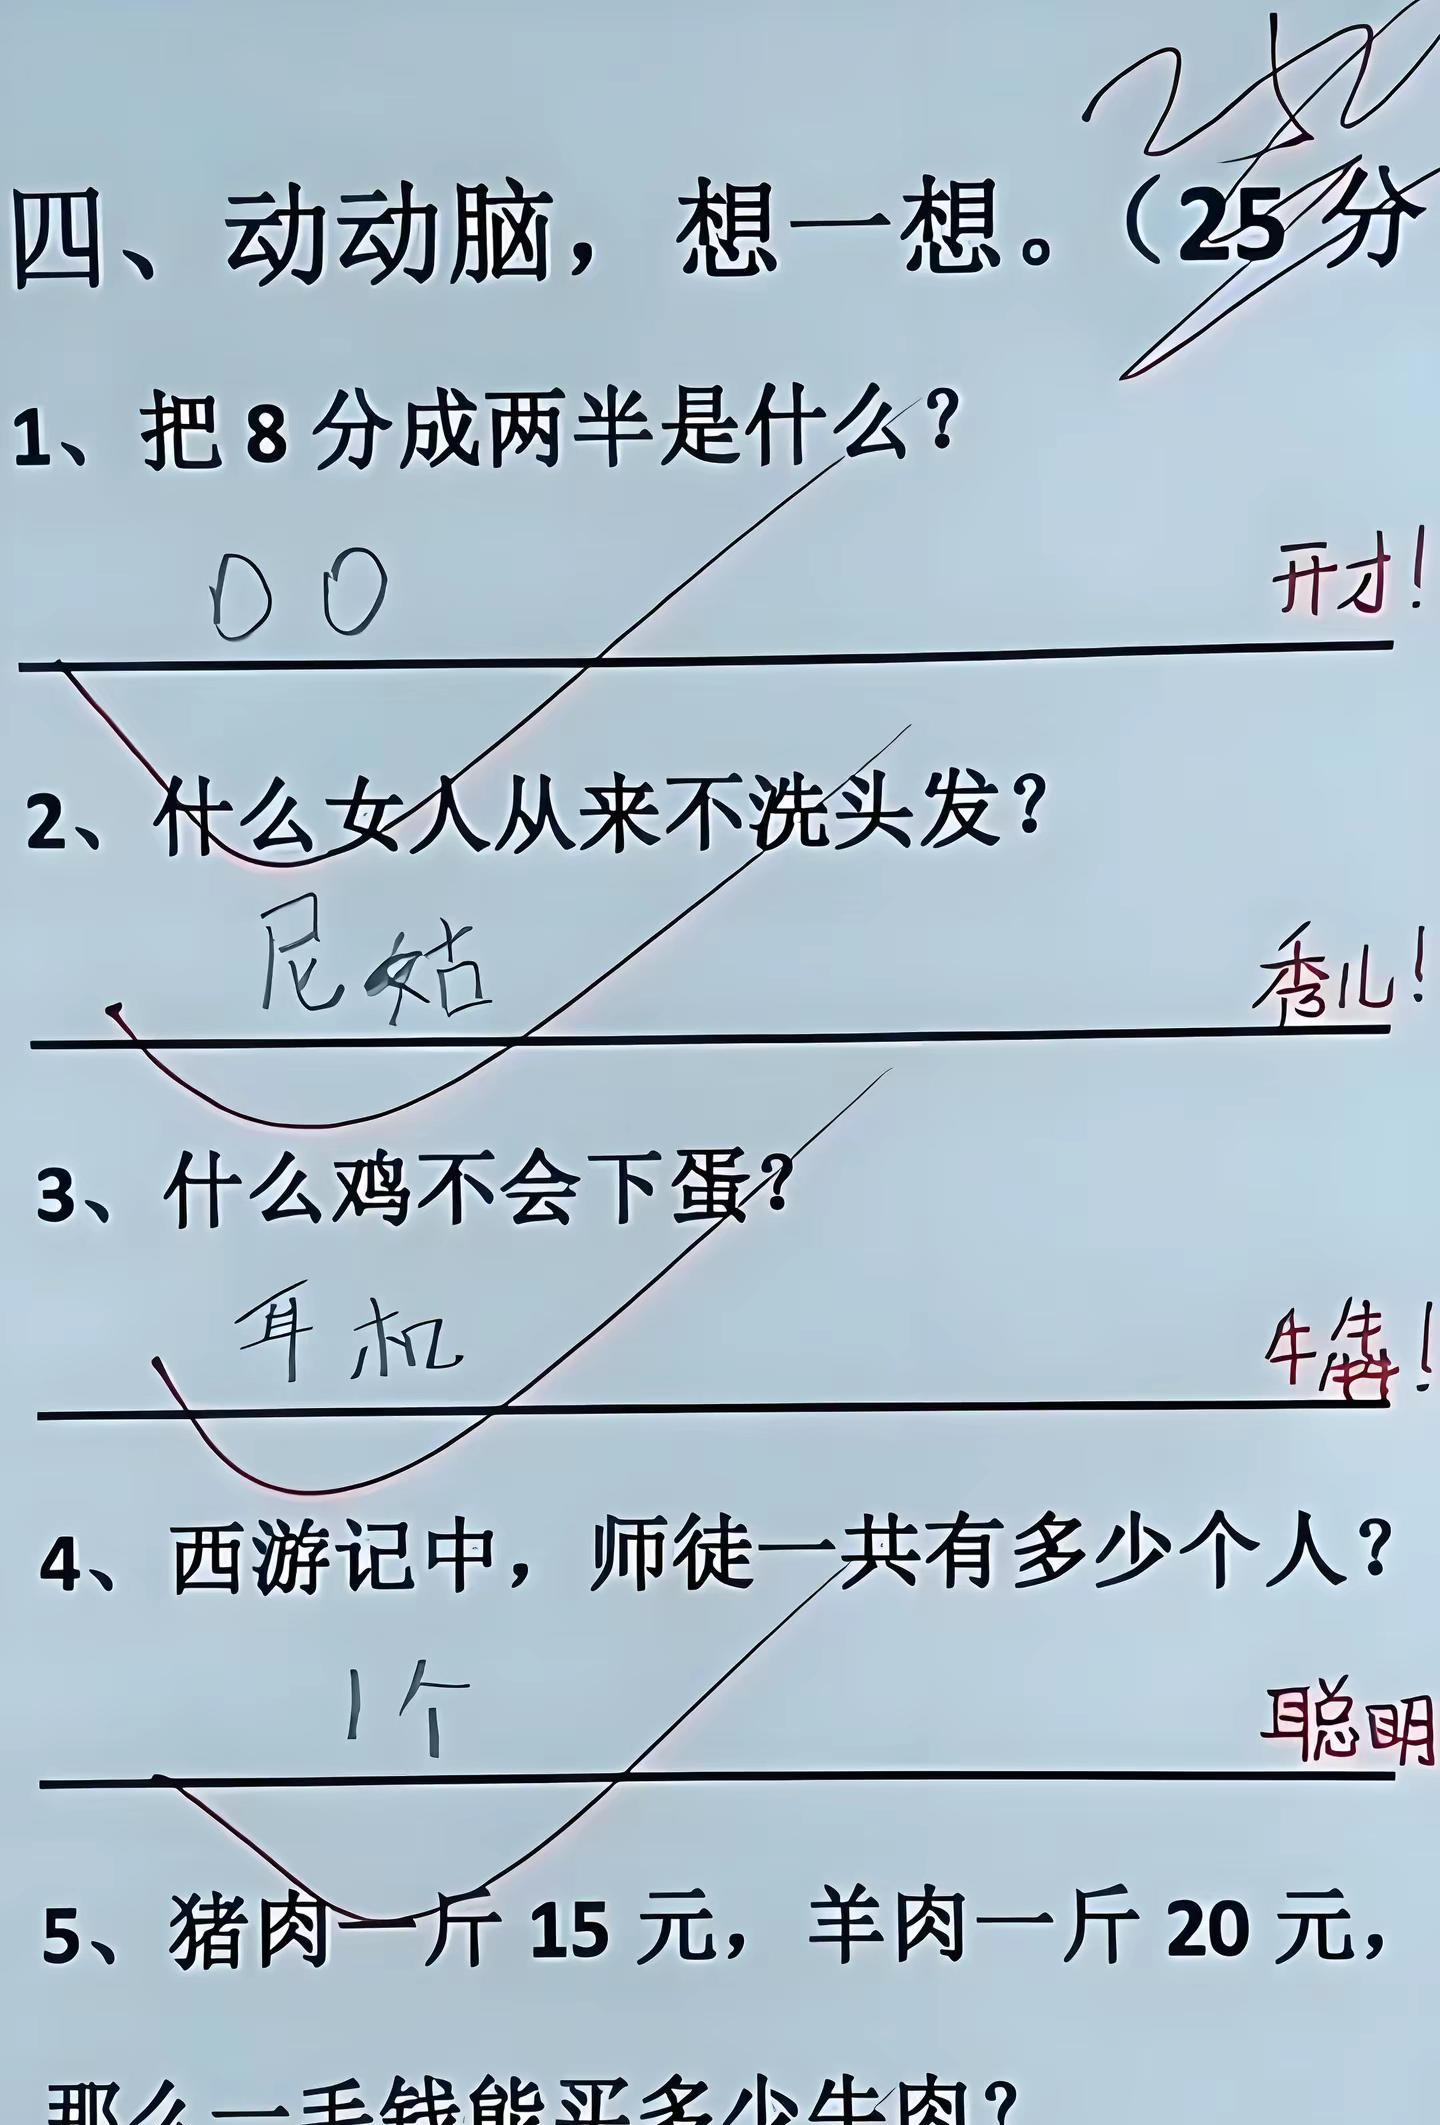 四、动动脑，想一想。（25分
1、把8分成两半是什么？
0 0
开才！
2、什么女人从来不洗头发？
尼姑
秀儿！
3、什么鸡不会下蛋？
耳机
牛犇！
4、西游记中，师徒一共有多少个人？
1个
聪明
5、猪肉一斤15元，羊肉一斤20元，
那么一毛钱能买多少牛肉？